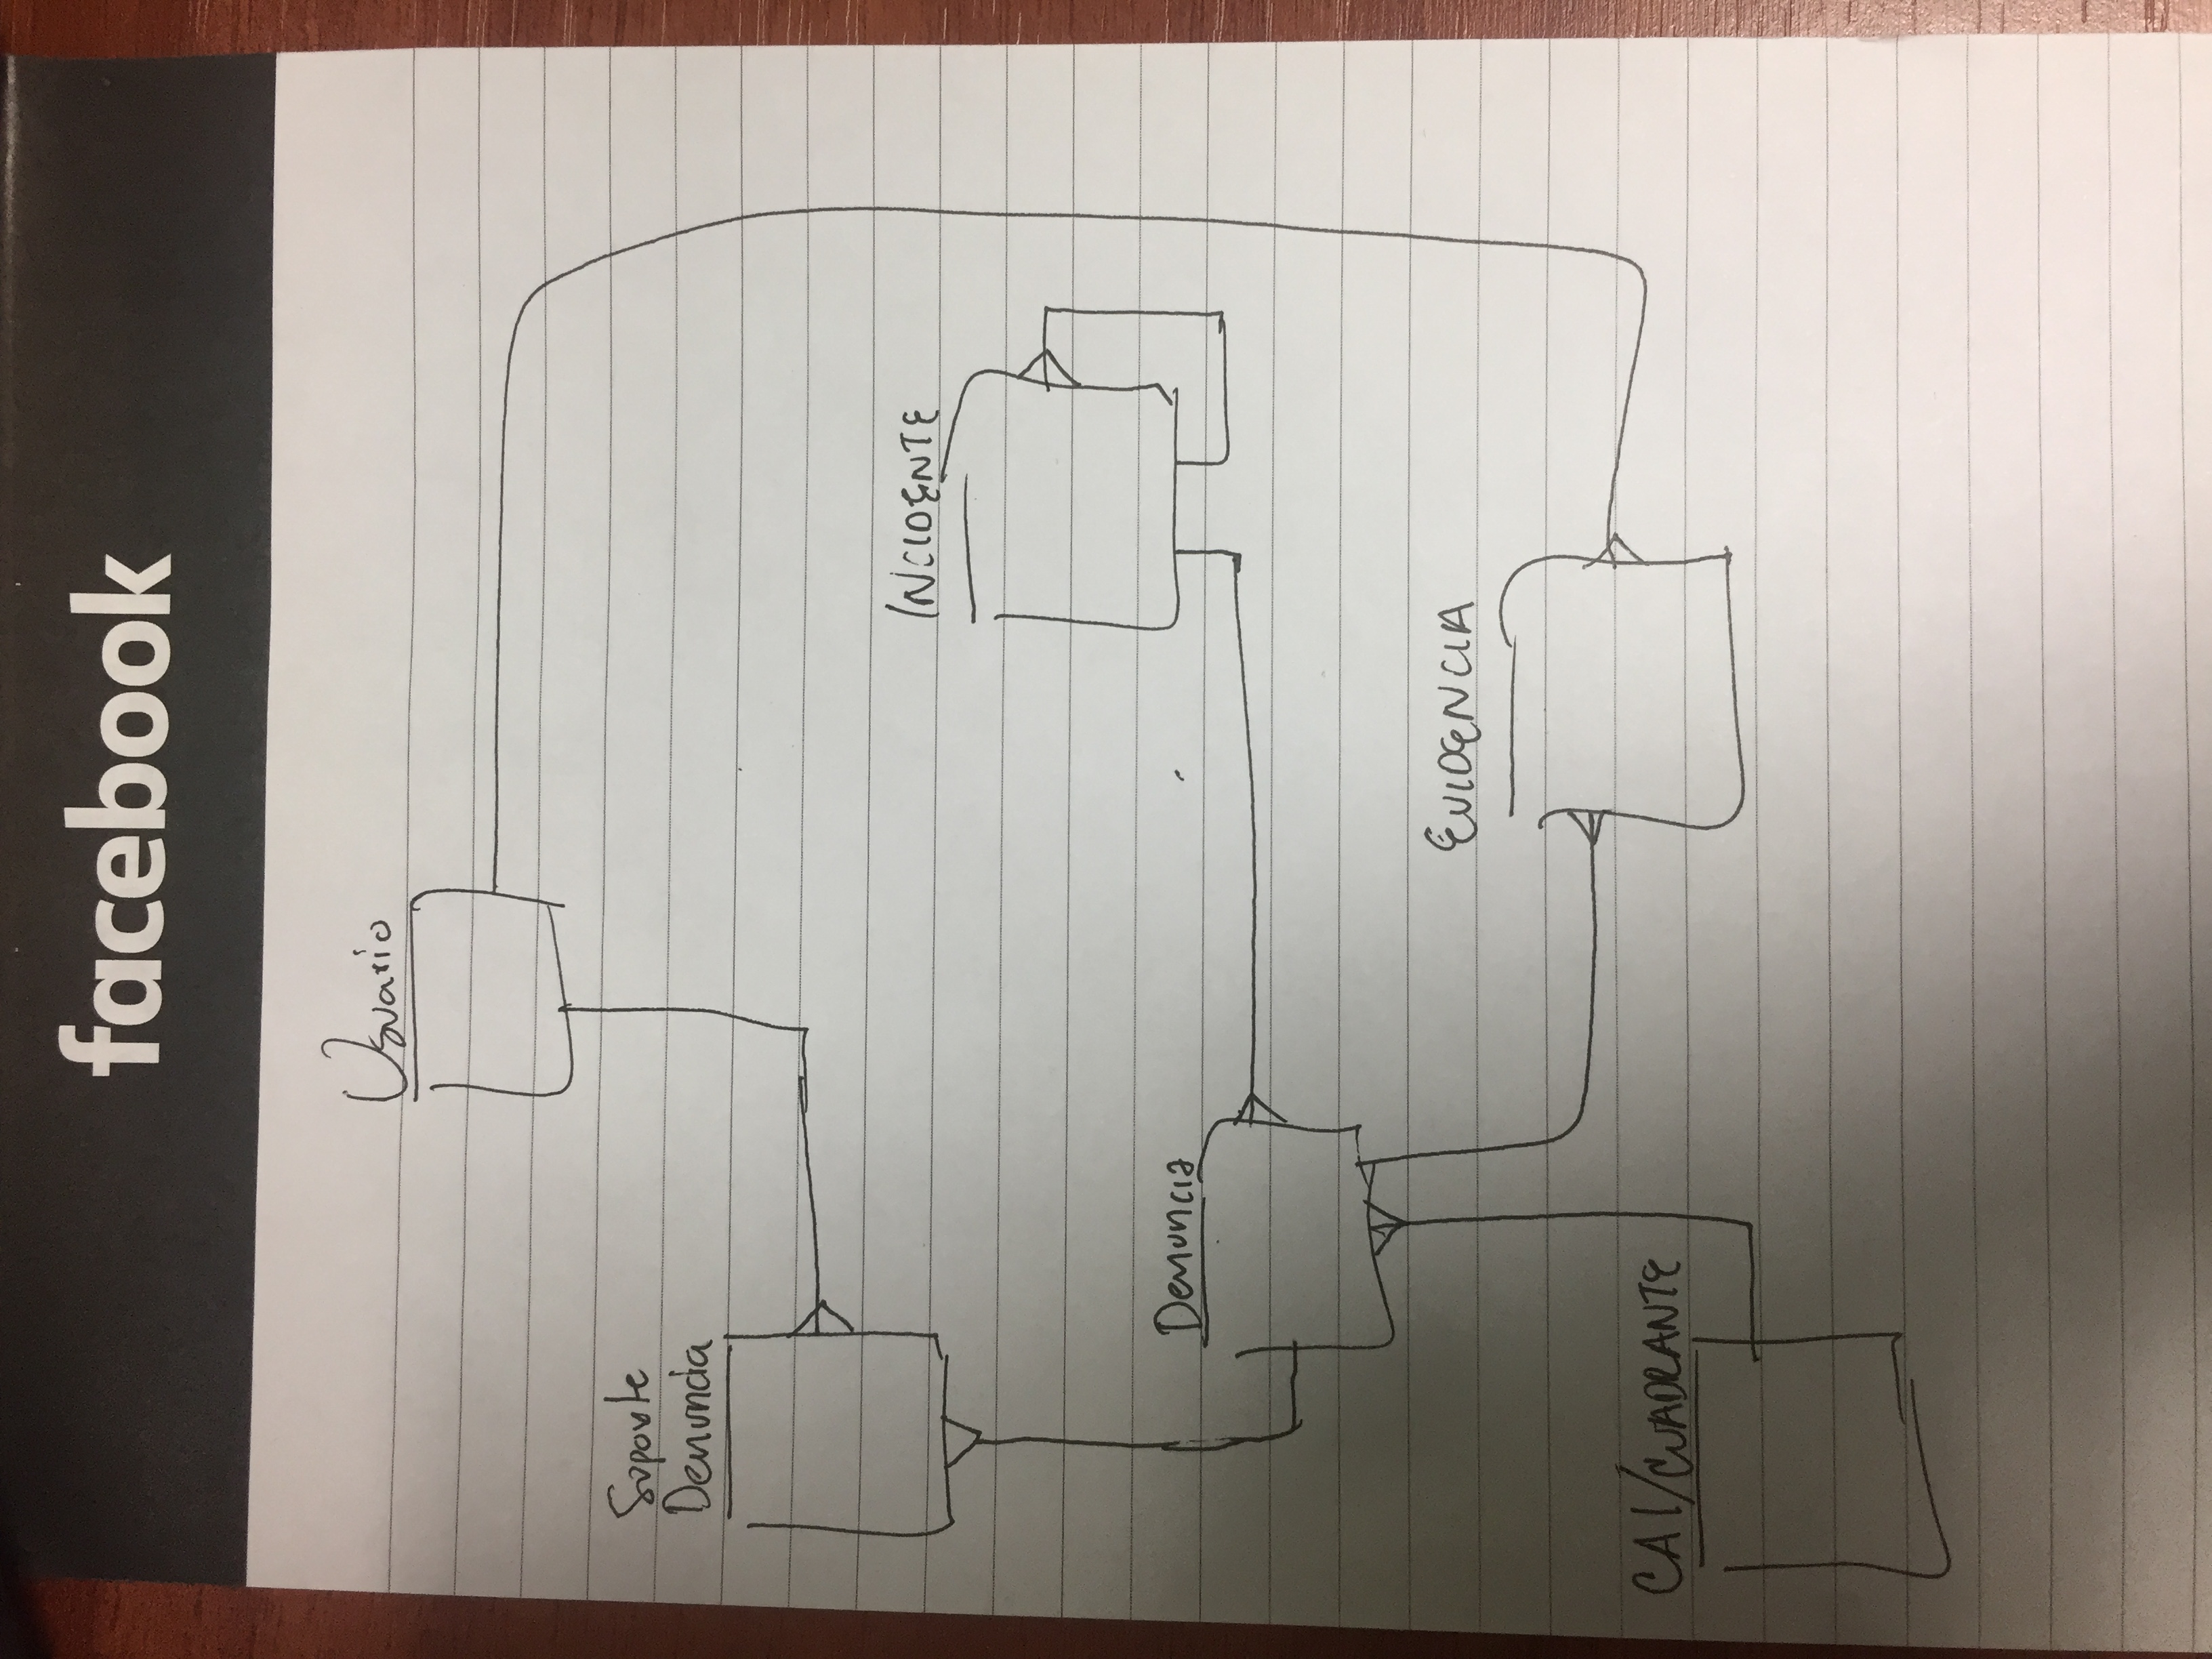 facebook
Usuario
Soporte
Denuncia
INCIDENTE
Denuncia
EVIDENCIA
CAI/CUADRANTE